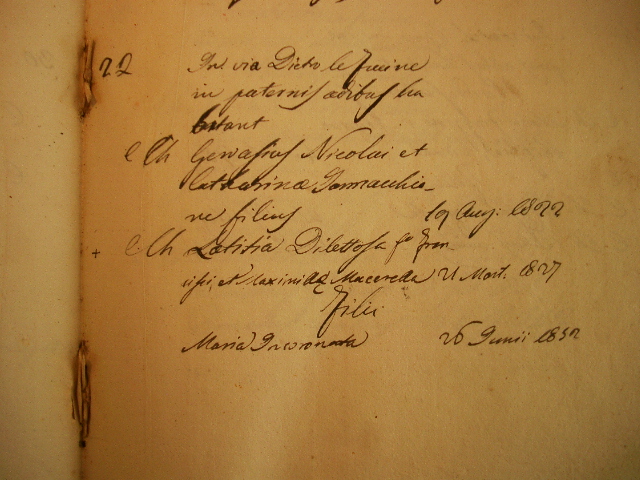 22 In via Dietro le Fucine
in paternis ædibus ha
bitant
C Ch Gervasius Nicolai et
Catharinæ Iannacchio-
ne filius 19 Aug: 1822
+ C Ch Lætitia Dilettosa fa Fran
cisci, et Maximidæ Macereda 21 Mart: 1827
Filii
Maria Incoronata 26 Junii 1852